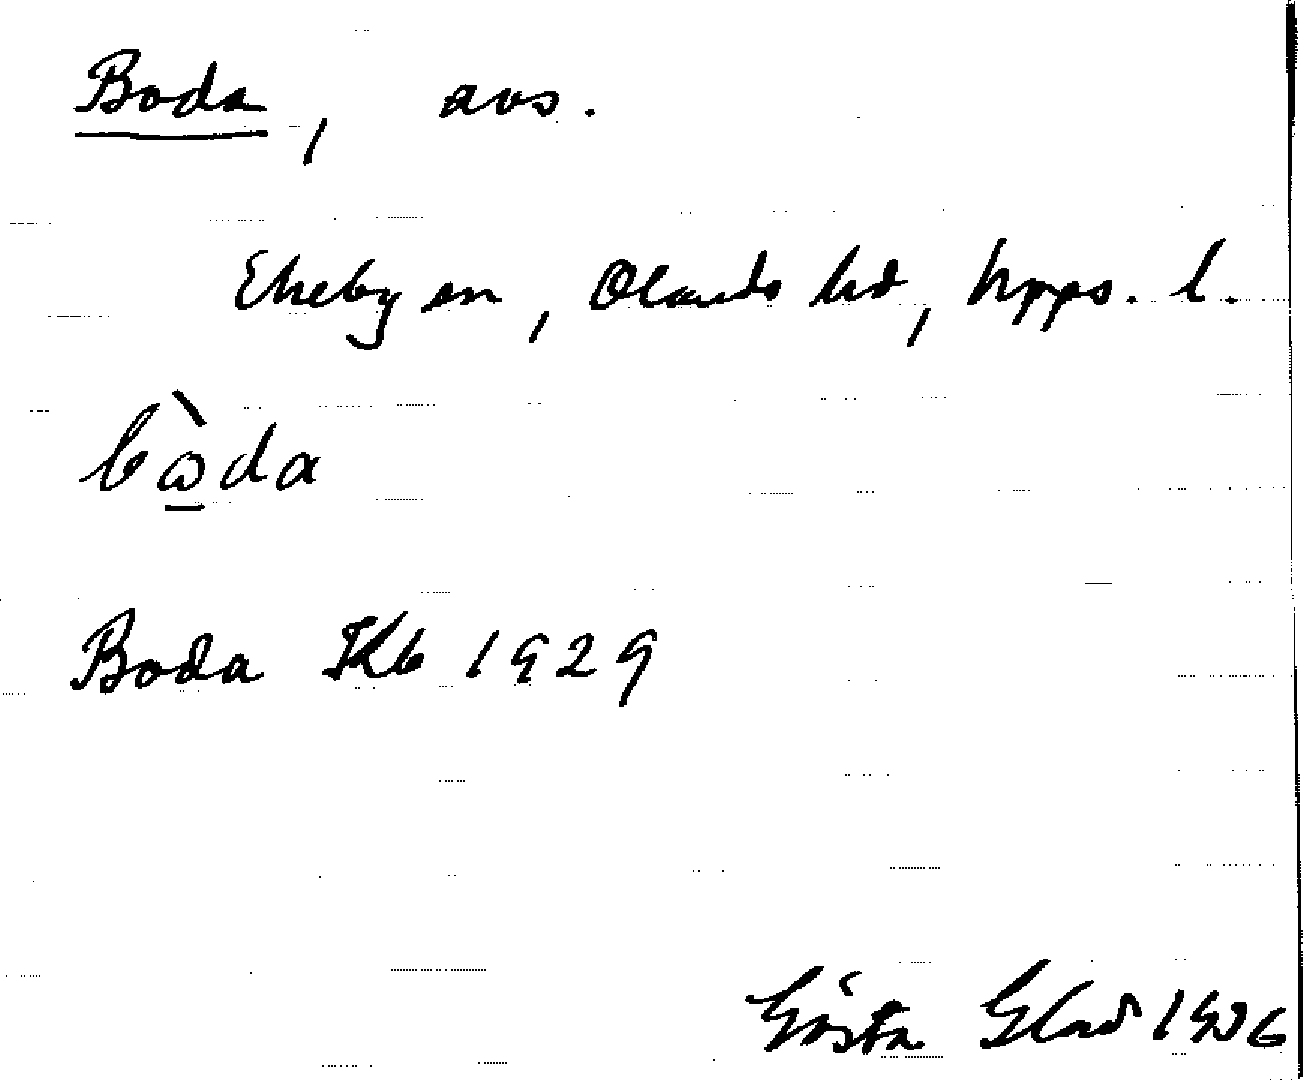 Boda, avs.
Ekeby sn, Olands hd, Upps. l.
bὼ̠da
Boda Jkb 1929
Gösta Glad 1936